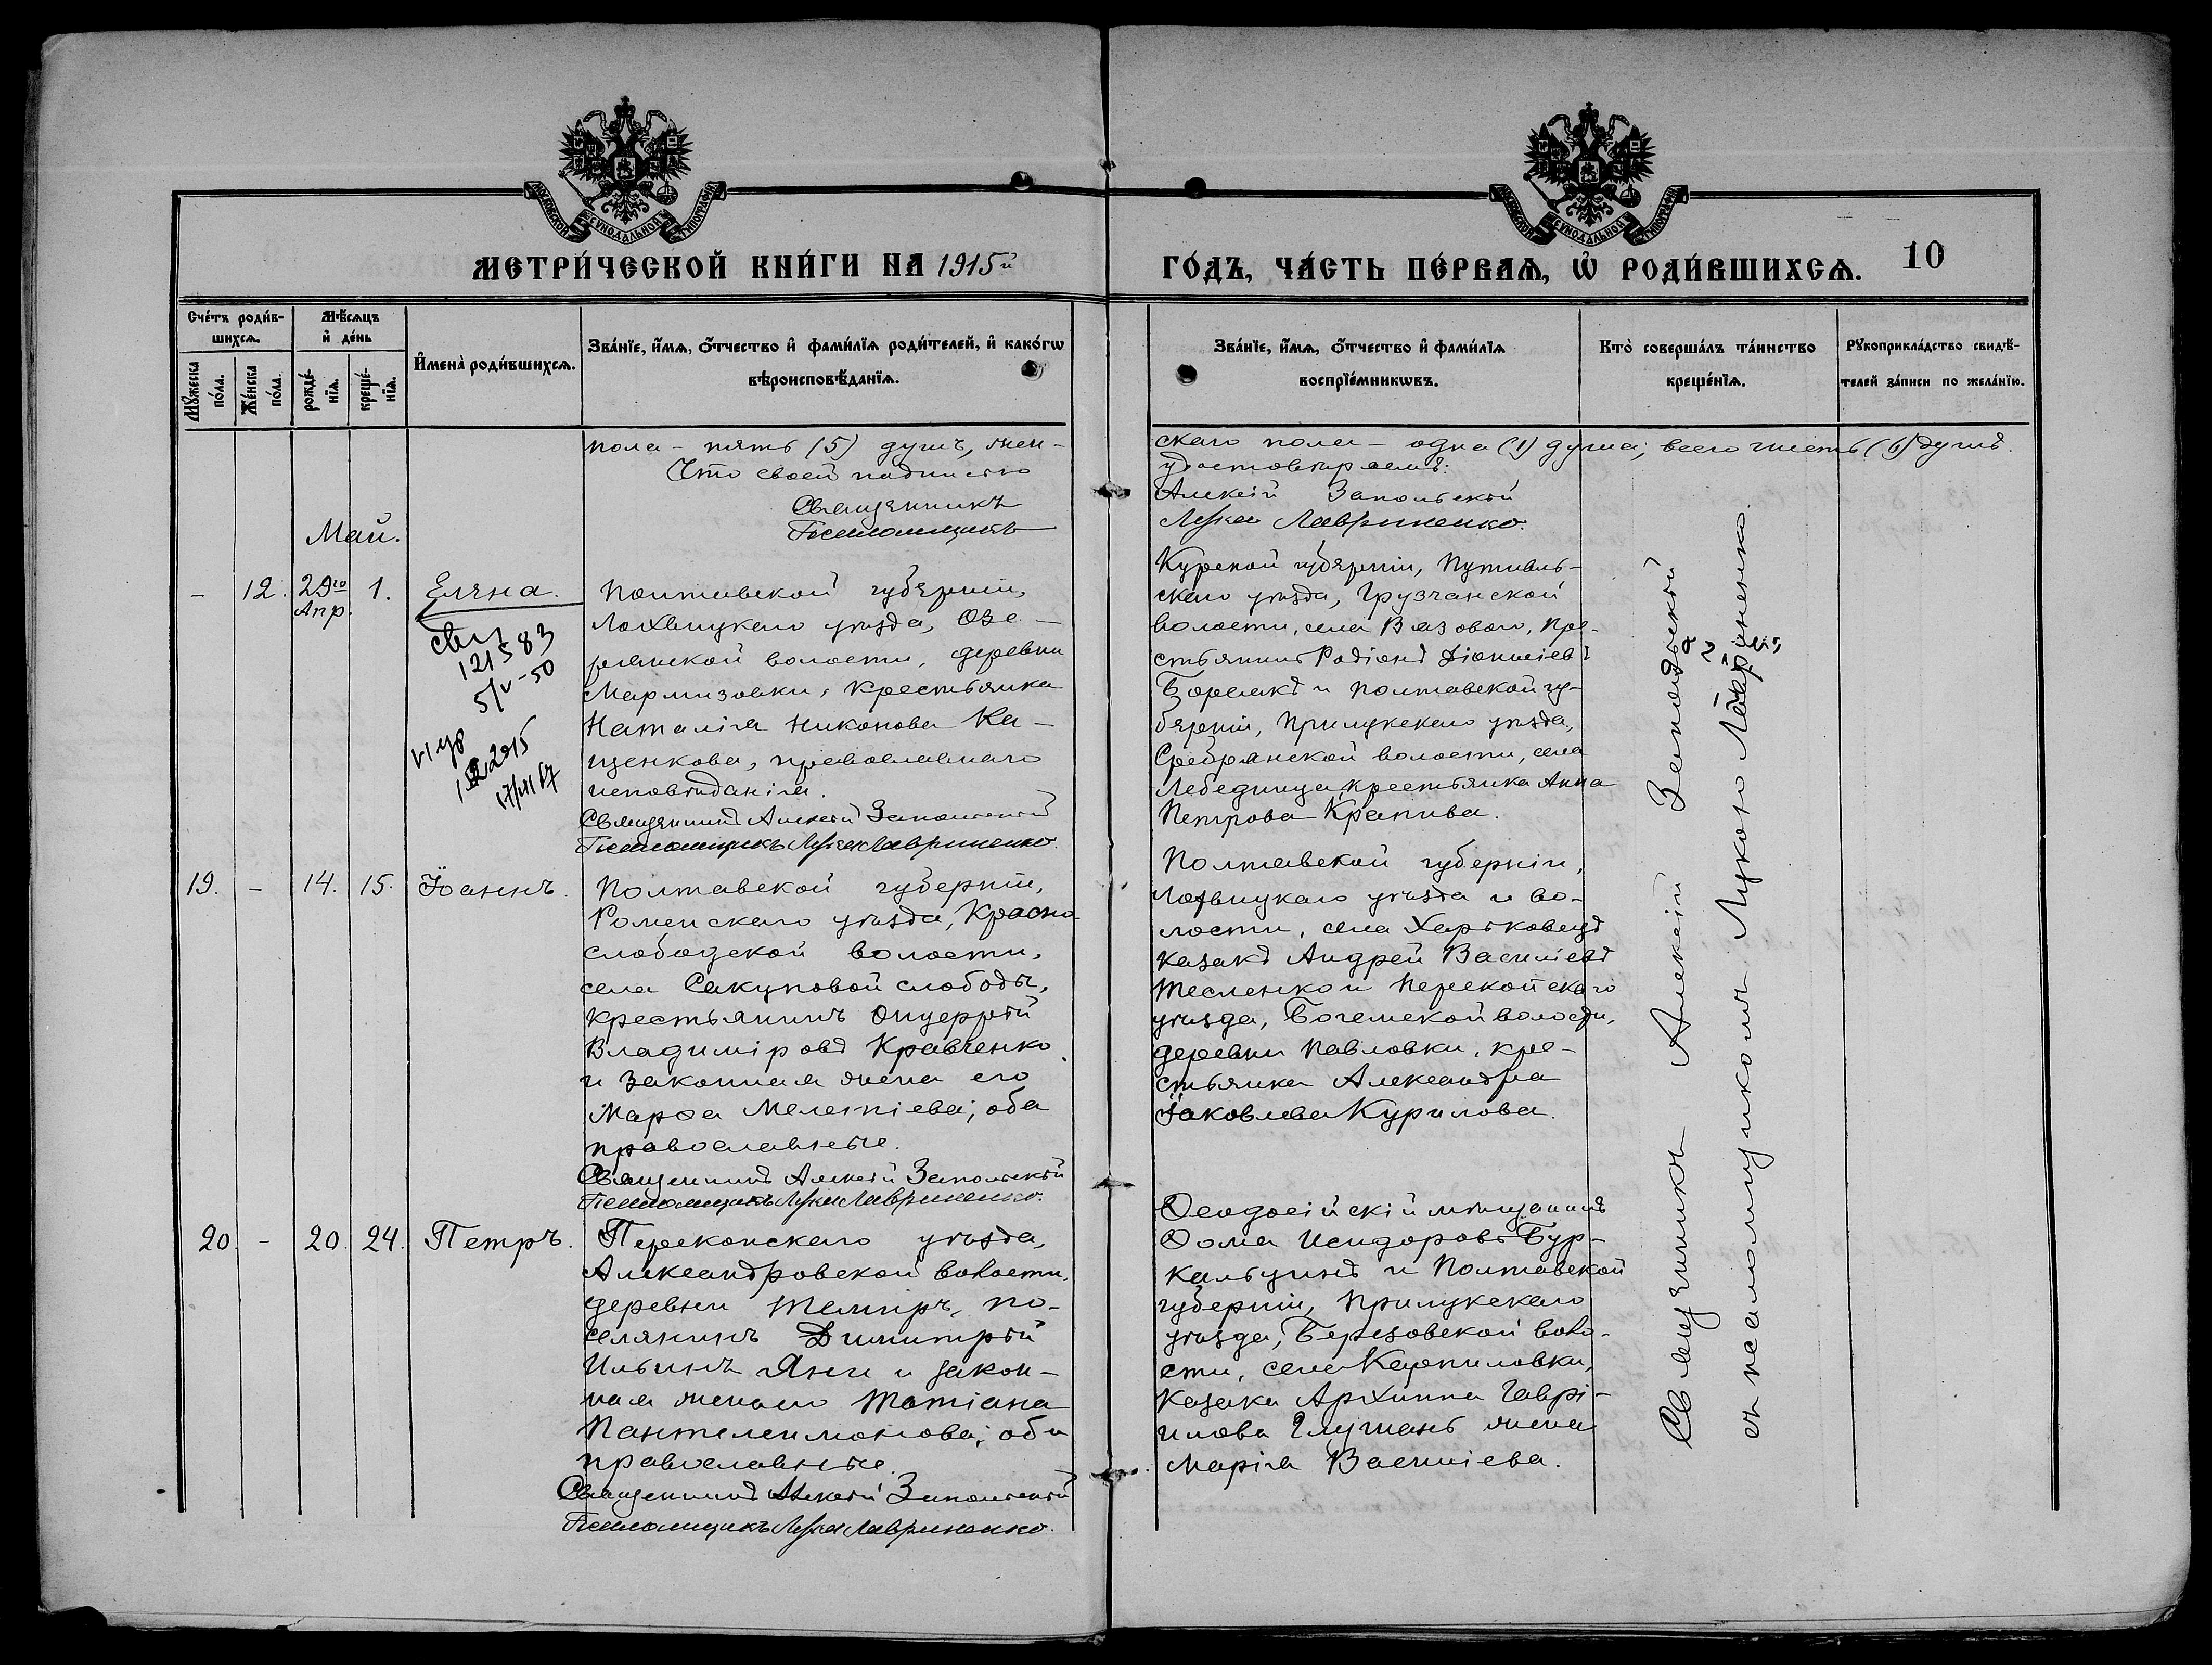 МЕТРИ́ЧЕСКОЙ КНИ́ГИ НА 1915й
ГО́ДЪ, ЧА́СТЬ ПЕ́РВАѦ, Ѡ РОДИ́ВШИХСѦ. 10
МОСКОВСКОЙ СѴНОДАЛЬНОЙ ТИПОГРАФІИ
МОСКОВСКОЙ СѴНОДАЛЬНОЙ ТИПОГРАФІИ
Сче́тъ роди́в-
шихсѧ.
Мꙋ́жеска
по́ла.
Же́нска
по́ла.
Мѣ́сѧцъ
и҆ де́нь
рожде́-
нїѧ.
креще́-
нїѧ.
И҆мена̀ роди́вшихсѧ.
Зва́нїе, и҆́мѧ, ѻ҆́тчество и҆ фами́лїѧ роди́телей, и҆ како́гѡ
вѣроисповѣ́данїѧ.
Зва́нїе, и҆́мѧ, ѻ҆́тчество и҆ фами́лїѧ
воспрїе́мникѡвъ.
Кто̀ соверша́лъ та́инство
креще́нїѧ.
Рꙋкоприкла́дство свидѣ́-
телей за́писи по жела́нїю.
пола – пять (5) душъ, жен-
Что своей подписью
Священникъ
Псаломщикъ
скаго пола – одна (1) душа; всего шесть (6) душъ.
удостовѣряемъ:
Алексій Запольскій
Лука Лавриненко.
Май.
– 12. 29го Апр. 1. Елена.
свид
121583
5/V-50
17/VII 57
Полтавской губерніи,
Лохвицкаго уѣзда, Озе-
рянской волости, деревни
Мармизовки, крестьянка
Наталія Никонова Ка-
щенкова, православнаго
исповѣданія.
Священникъ Алексій Запольскій
Псаломщикъ Лука Лавриненко.
Курской губерніи, Путивль-
скаго уѣзда, Грузчанской
волости, села Вязового, кре-
стьянинъ Родіонъ Діонисіевъ
и Полтавской гу-
берніи, Прилукскаго уѣзда,
Сребрянской волости, села
Лебединца, крестьянка Анна
Петрова Крапива.
19. – 14. 15. Іоаннъ.
Полтавской губерніи,
Роменскаго уѣзда, Красно-
слободской волости,
села Сакуновой слободы,
крестьянинъ
Владиміровъ Кравченко
и законная жена его
Марѳа Мелетіева; оба
православные.
Священникъ Алексій Запольскій
Псаломщикъ Лука Лавриненко.
Полтавской губерніи,
Лохвицкаго уѣзда и во-
лости, села Харьковецъ
казакъ Андрей Василіевъ
Тесленко и Перекопскаго
уѣзда, Богемской волости,
деревни Павловки, кре-
стьянка Александра
Іаковлева Курилова.
20. – 20. 24. Петръ.
Перекопскаго уѣзда,
Александровской волости,
деревни Темиръ, по-
селянинъ Димитрій
Ильинъ Янги и закон-
ная жена его Татіана
Пантелеимонова; оба
православные.
Священникъ Алексій Запольскій
Псаломщикъ Лука Лавриненко.
Ѳеодосійскій мѣщанинъ
Ѳома Исидоровъ Бур-
кальцинъ и Полтавской
губерніи, Прилукскаго
уѣзда, Березовской воло-
сти, села Карпиловки,
казака Архиппа Гаврі-
илова Глушань жена
Марія Василіева.
Священникъ Алексій Запольскій
съ псаломщикомъ Лукою Лавриненко.